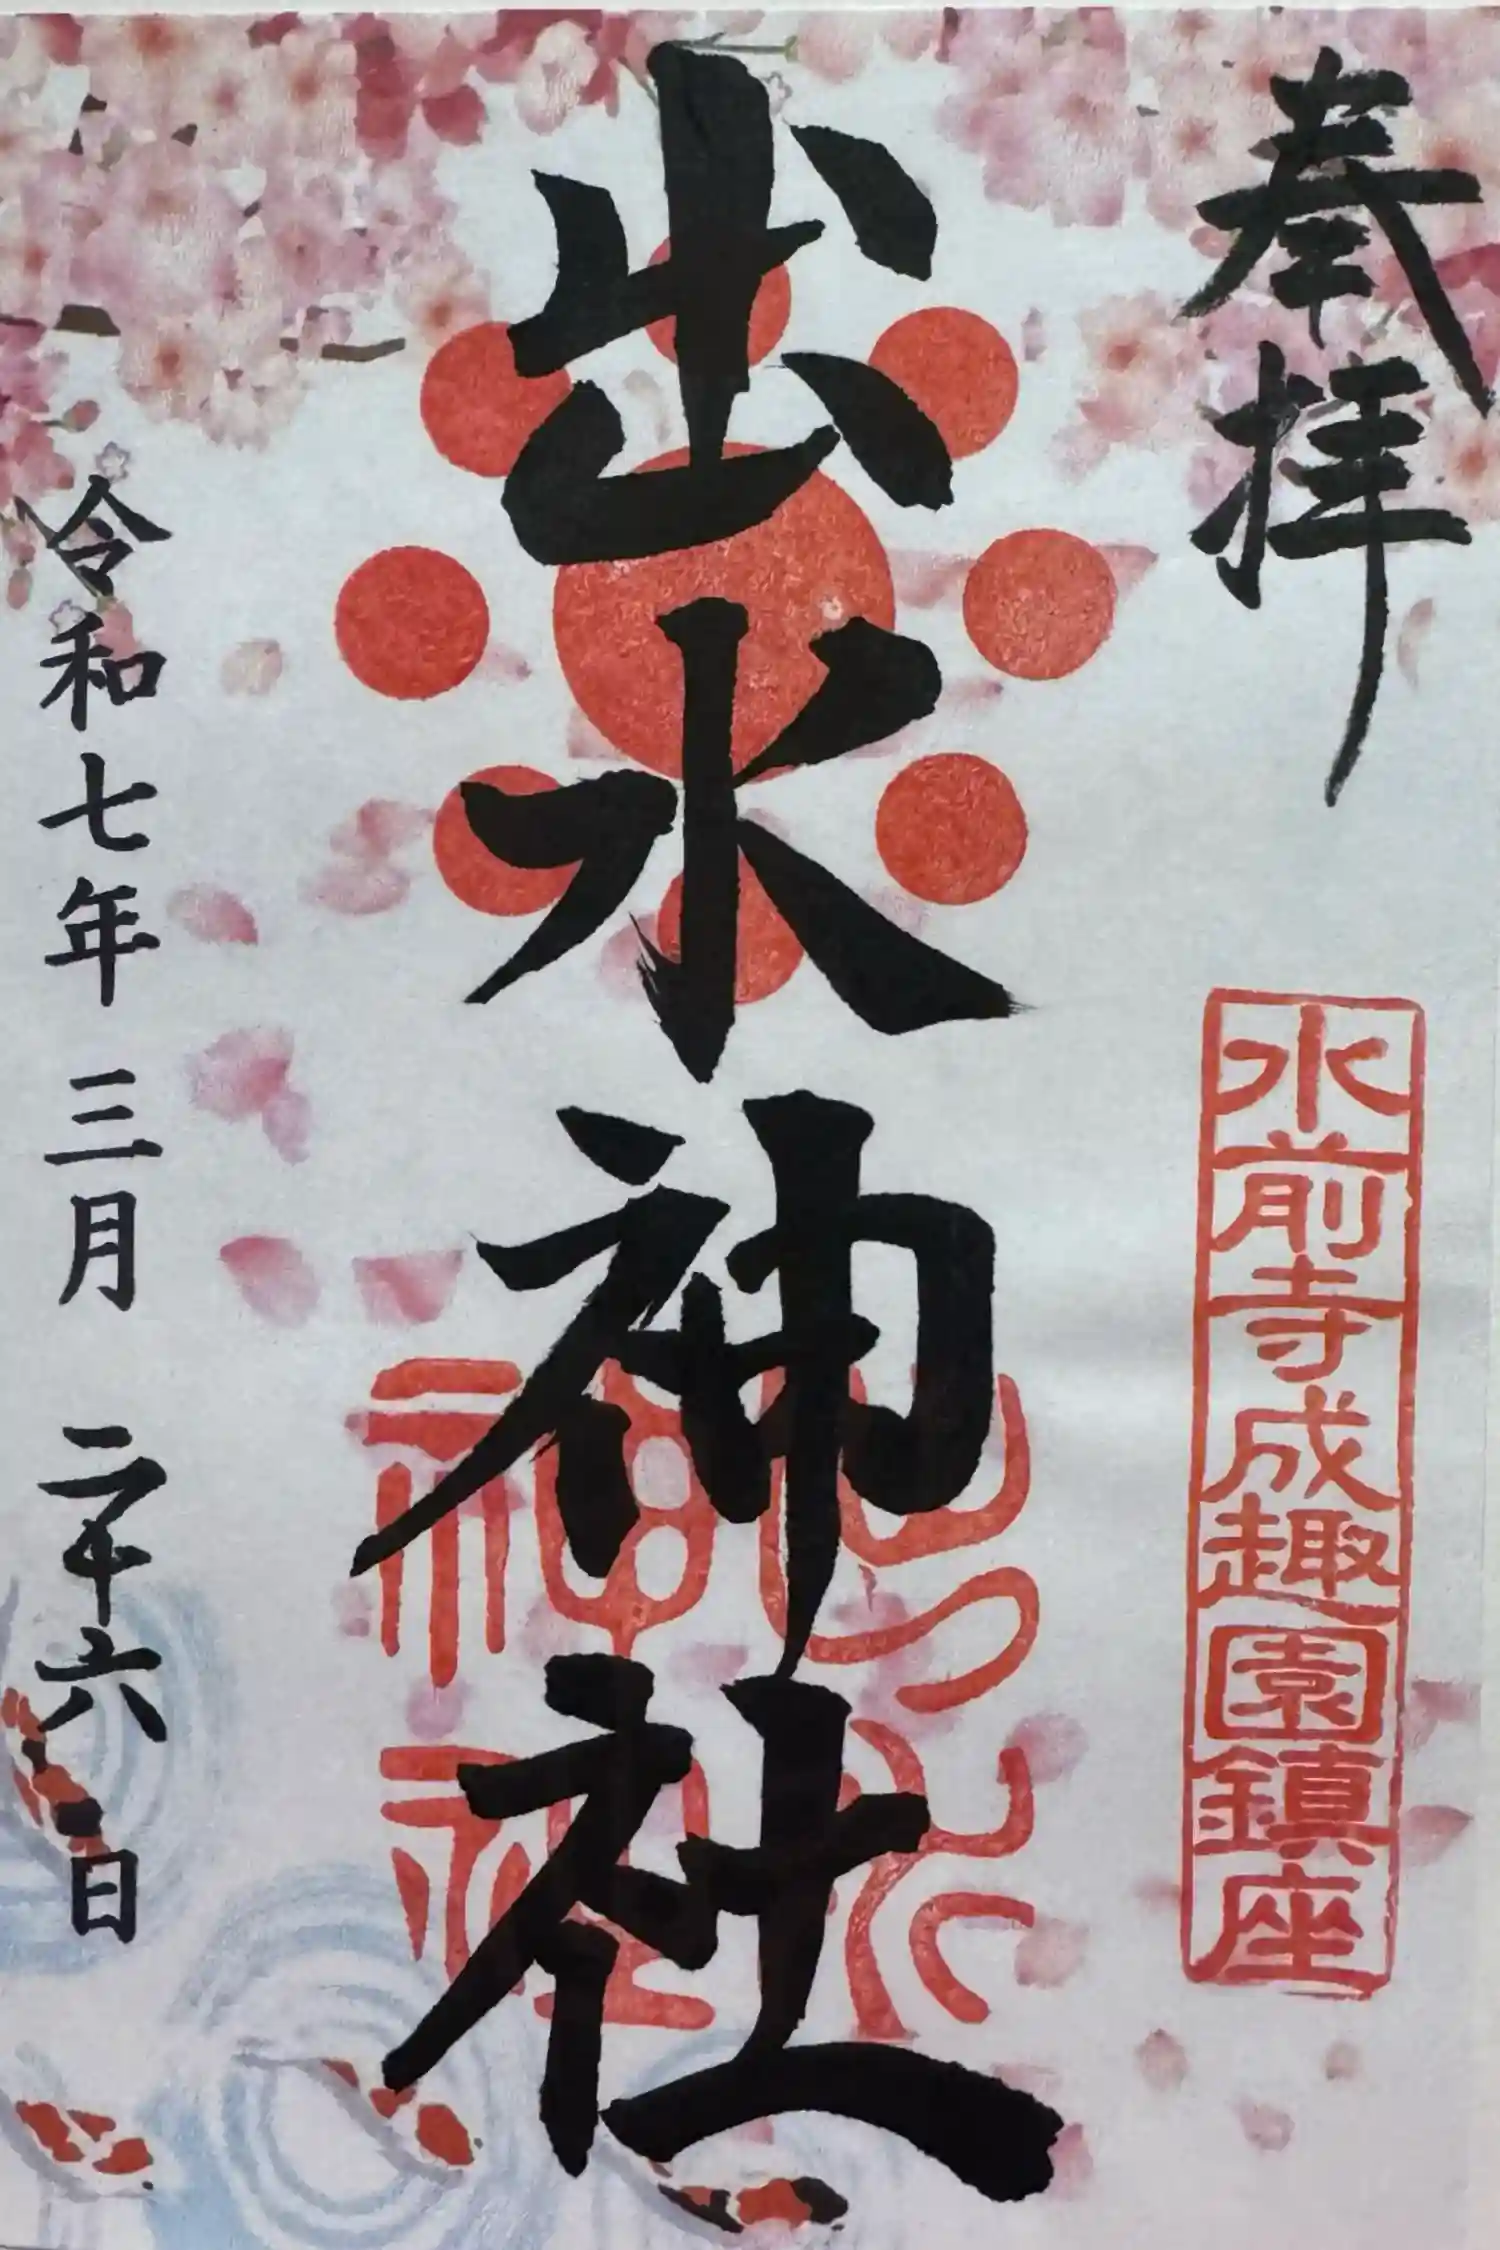 奉拝
水前寺成趣園鎮座
出水神社
出水神社
令和七年三月二十六日